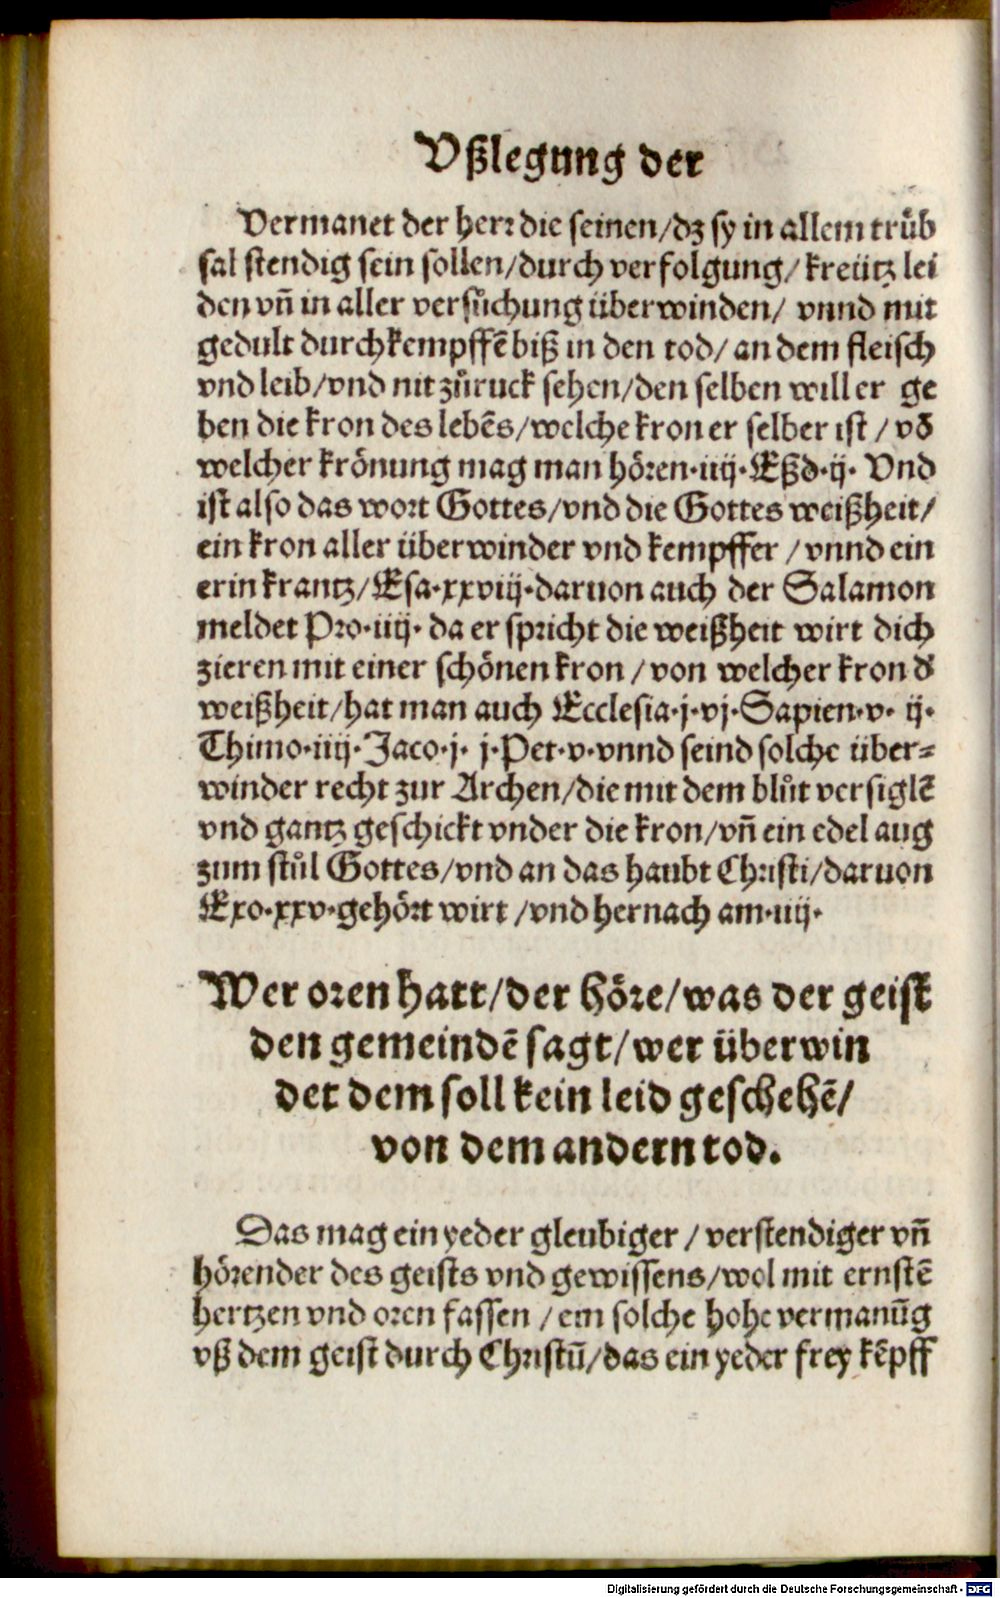 Vßlegung der
Vermanet der herꝛ die seinen/dz sy in allem trůb
sal stendig sein sollen/durch verfolgung/kreütz lei
den vñ in aller versůchung überwinden/ vnnd mit
gedult durchkempffē biß in den tod/an dem fleisch
vnd leib/vnd nit zůruck sehen/den selben will er ge
ben die kron des lebēs/welche kron er selber ist/vō
welcher krönung mag man hören·iiij·Eßd·ij· Vnd
ist also das wort Gottes/vnd die Gottes weißheit/
ein kron aller überwinder vnd kempffer/vnnd ein
erin krantz/Esa·xxviij·daruon auch der Salamon
meldet Pro·iiij· da er spricht die weißheit wirt dich
zieren mit einer schönen kron/von welcher kron d̓
weißheit/hat man auch Ecclesia·j·vj·Sapien·v· ij·
Thimo·iiij·Jaco·j· j·Pet·v·vnnd seind solche über-
winder recht zur Archen/die mit dem blůt versiglē
vnd gantz geschickt vnder die kron/vñ ein edel aug
zum stůl Gottes/vnd an das haubt Christi/daruon
Exo·xxv·gehört wirt/vnd hernach am·iiij·
Wer oren hatt/der höre/was der geist
den gemeindē sagt/wer überwin
det dem soll kein leid geschehē/
von dem andern tod.
Das mag ein yeder gleubiger/verstendiger vñ
hörender des geists vnd gewissens/wol mit ernstē
hertzen vnd oren fassen/ein solche hohe vermanūg
vß dem geist durch Christū/das ein yeder frey kēpff
Digitalisierung gefördert durch die Deutsche Forschungsgemeinschaft - DFG